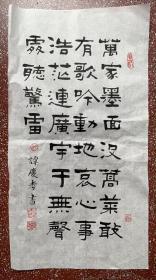 萬家墨面没蒿萊敢
有歌吟動地哀心事
浩茫連廣宇于無聲
處聽驚雷
譚慶書